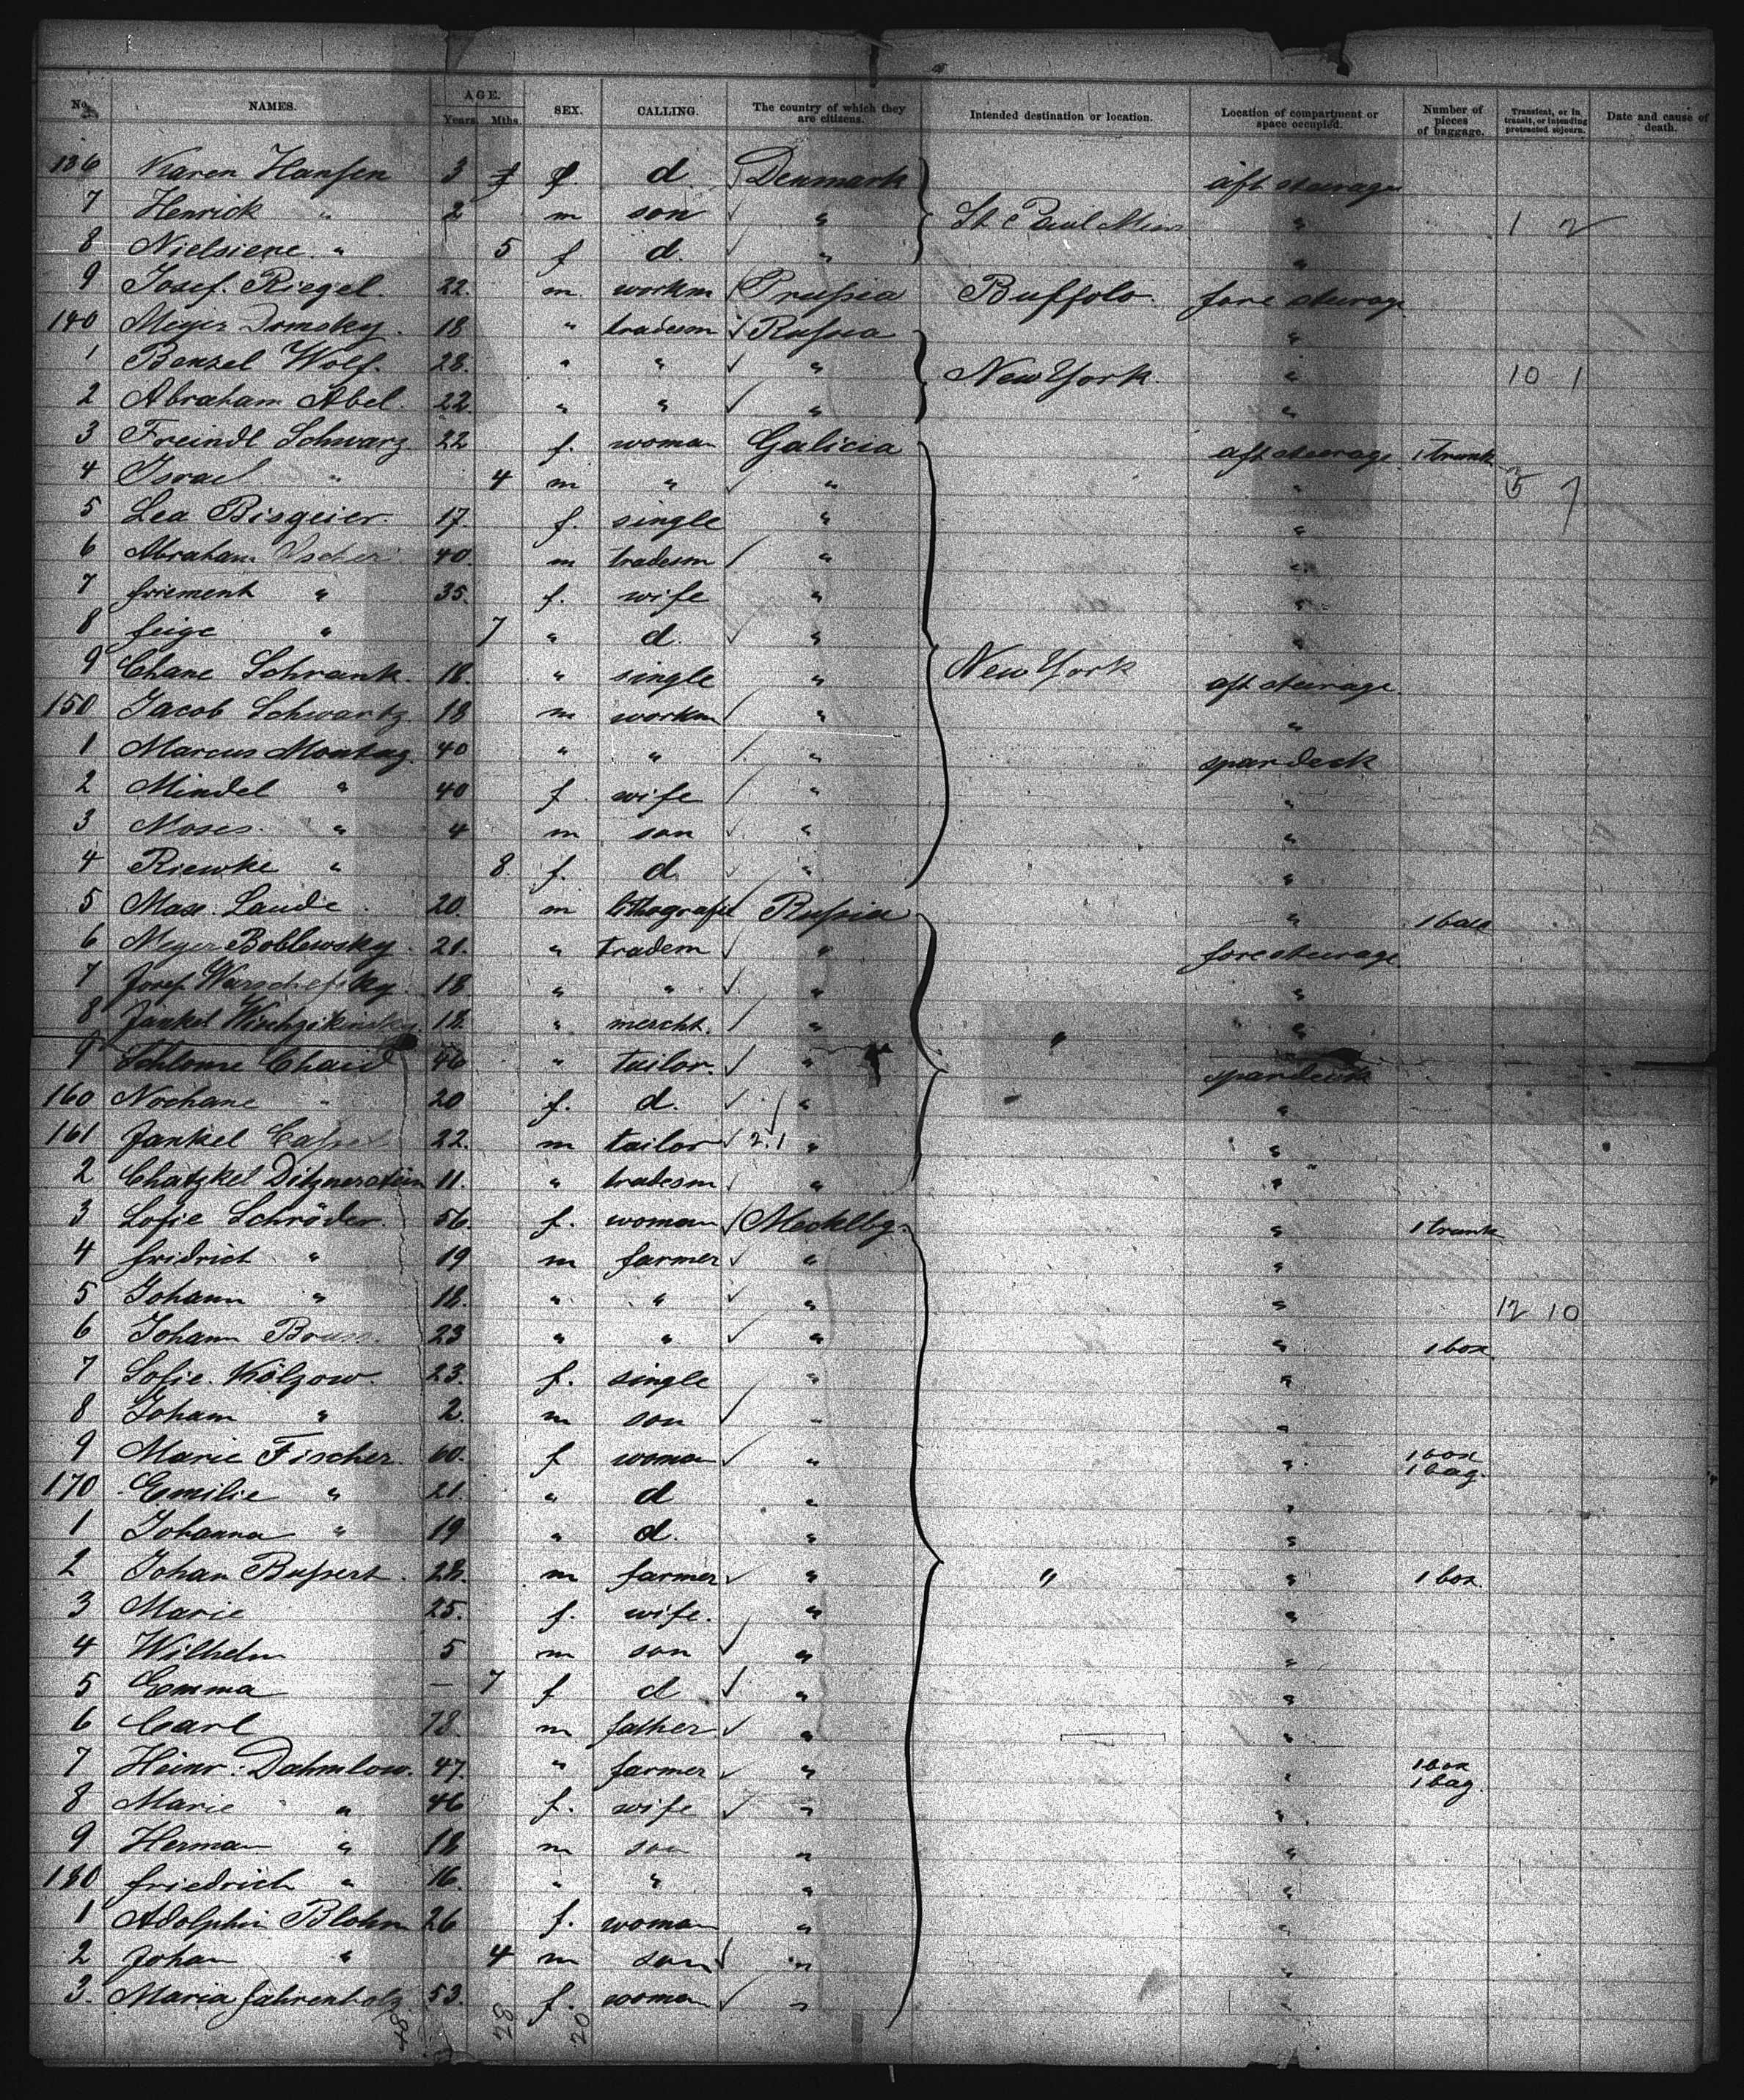 No. NAMES. AGE. Years. Mths. SEX. CALLING. The country of which they are citizens. Intended destination or location. Location of compartment or space occupied. Number of pieces of baggage. Transient, or in transit, or intending protracted sojourn. Date and cause of death.
136 Karen Hansen 3 f. d. Denmark aft steerage
7 Henrick " 2 m son " St Paul Minn " 1 2
8 Nielsiene " 5 f d. " "
9 Josef Riegel. 22. m. workm Prussia Buffolo. fore steerage
140 Meyer 18 " tradesm Russia "
1 Benzel Wolf. 28. " " " New York. " 10 1
2 Abraham Abel. 22. " " " "
3 Freindl Schwarz 22 f. woman Galicia aft steerage 1 trunk
4 Israel " 4 m " " " 5 7
5 Lea Bisgeier. 17. f. single " "
6 Abraham 40. m tradesm " "
7 friement " 35. f. wife " "
8 feige " 7 " d. " "
9 Chane Schrank. 18. " single " New York aft steerage
150 Jacob Schwartz. 18 m workm " "
1 Marcus Montag. 40 " " " spardeck
2 Mindel " 40 f wife " "
3 Moses. " 4 m son " "
4 Riewke " 8. f. d. " "
5 Max Laude 20. m lithograf Russia " 1 bale
6 Meyer Boblewsky 21. " tradem " fore steerage
7 Josef 18. " " " "
8 Jankel 18. " mercht. " " "
9 Schlome 46 " tailor. " spardeck
160 Nochane " 20 f. d. " "
161 Jankel 22. m tailor 2.1 " "
2 Chatzkel Ditznerstein 11. " tradesm " "
3 Sofie Schröder. 56 f. woman Mecklbg. " 1 trunk
4 fridrich " 19 m farmer " "
5 Johann " 18. " " " " 12 10
6 Johann 23 " " " " 1 box
7 Sofie Kölzow. 23. f. single " "
8 Joham " 2. m son " "
9 Marie Fischer. 60. f woman " " 1 box 1 bag.
170 Emilie " 21. " d " "
1 Johanna " 19 " d. " "
2 Johan Bussert. 28. m farmer " " " 1 box.
3 Marie 25. f. wife. " "
4 Wilhelm 5 m son " "
5 Emma — 7 f d " "
6 Carl 78. m father " "
7 Heinr. Dahmlow. 47. " farmer " " 1 box 1 bag.
8 Marie " 46 f. wife " "
9 Herman " 18 m son " "
180 friedrich " 16. " " " "
1 Adolphin Blohm 26 f. woman " "
2 Johan " 4 m son " "
3. Maria fahrenholz. 53. f. woman " "
48 28 20